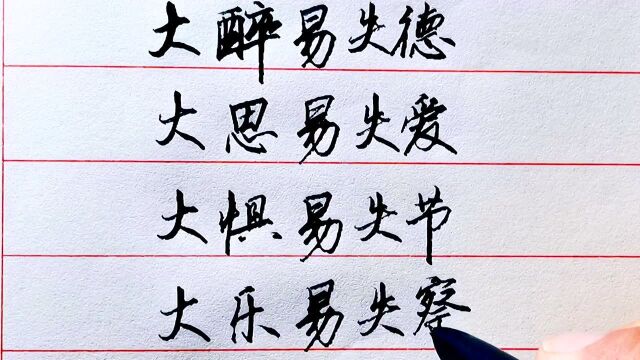 大醉易失德
大思易失爱
大惧易失节
大乐易失察